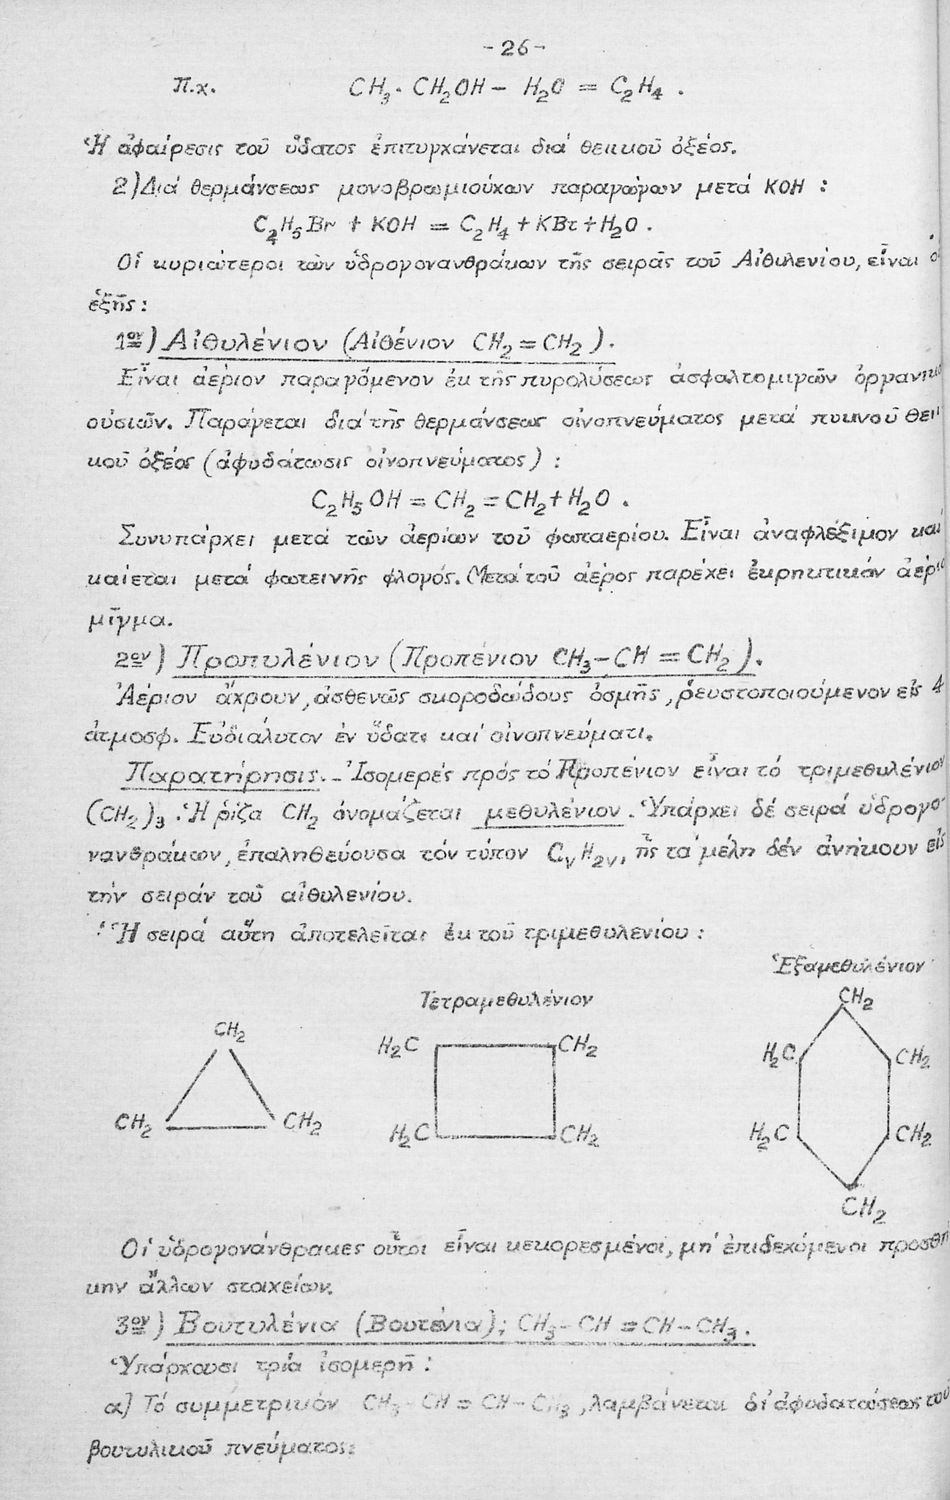 -26-
Π.χ. CH₃. CH₂OH - H₂O = C₂H₄ .
Ἡ ἀφαίρεσις τοῦ ὕδατος ἐπιτυγχάνεται διά θειικοῦ ὀξέος.
2) Διά θερμάνσεως μονοβρωμιούχων παραγώγων μετά KOH :
C₂H₅Br + KOH = C₂H₄ + KBr + H₂O .
Οἱ κυριώτεροι τῶν ὑδρογονανθράκων τῆς σειρᾶς τοῦ Αἰθυλενίου, εἶναι οἱ
ἑξῆς :
1ον) Αἰθυλένιον (Αἰθένιον CH₂ = CH₂ ).
Εἶναι ἀέριον παραγόμενον ἐκ τῆς πυρολύσεως ἀσφαλτομιγῶν ὀργανικ
οὐσιῶν. Παράγεται διά τῆς θερμάνσεως οἰνοπνεύματος μετά πυκνοῦ θει
κοῦ ὀξέος (ἀφυδάτωσις οἰνοπνεύματος) :
C₂H₅OH = CH₂ = CH₂ + H₂O .
Συνυπάρχει μετά τῶν ἀερίων τοῦ φωταερίου. Εἶναι ἀναφλέξιμον καί
καίεται μετά φωτεινῆς φλογός. Μετά τοῦ ἀέρος παρέχει ἐκρηκτικόν ἀέριο
μῖγμα.
2ον) Προπυλένιον (Προπένιον CH₃-CH = CH₂ ).
Ἀέριον ἄχρουν, ἀσθενῶς σκοροδώδους ὀσμῆς, ῥευστοποιούμενον εἰς 4
ἀτμοσφ. Εὐδιάλυτον ἐν ὕδατι καί οἰνοπνεύματι.
Παρατήρησις.- Ἰσομερές πρός τό Προπένιον εἶναι τό τριμεθυλένιον
(CH₂)₃ . Ἡ ῥίζα CH₂ ὀνομάζεται μεθυλένιον. Ὑπάρχει δέ σειρά ὑδρογο-
νανθράκων, ἐπαληθεύουσα τόν τύπον CᵥH₂ᵥ, ἧς τά μέλη δέν ἀνήκουν εἰς
τήν σειράν τοῦ αἰθυλενίου.
Ἡ σειρά αὕτη ἀποτελεῖται ἐκ τοῦ τριμεθυλενίου :
Ἑξαμεθυλένιον
Τετραμεθυλένιον
CH₂
CH₂ CH₂
H₂C CH₂
H₂C CH₂
CH₂
H₂C CH₂
H₂C CH₂
CH₂
Οἱ ὑδρογονάνθρακες οὗτοι εἶναι κεκορεσμένοι, μή ἐπιδεχόμενοι προσθή
κην ἄλλων στοιχείων.
3ον) Βουτυλένια (Βουτένια); CH₃- CH = CH-CH₃.
Ὑπάρχουσι τρία ἰσομερῆ :
α) Τό συμμετρικόν CH₃- CH = CH - CH₃, λαμβάνεται δι' ἀφυδατώσεως τοῦ
βουτυλικοῦ πνεύματος: